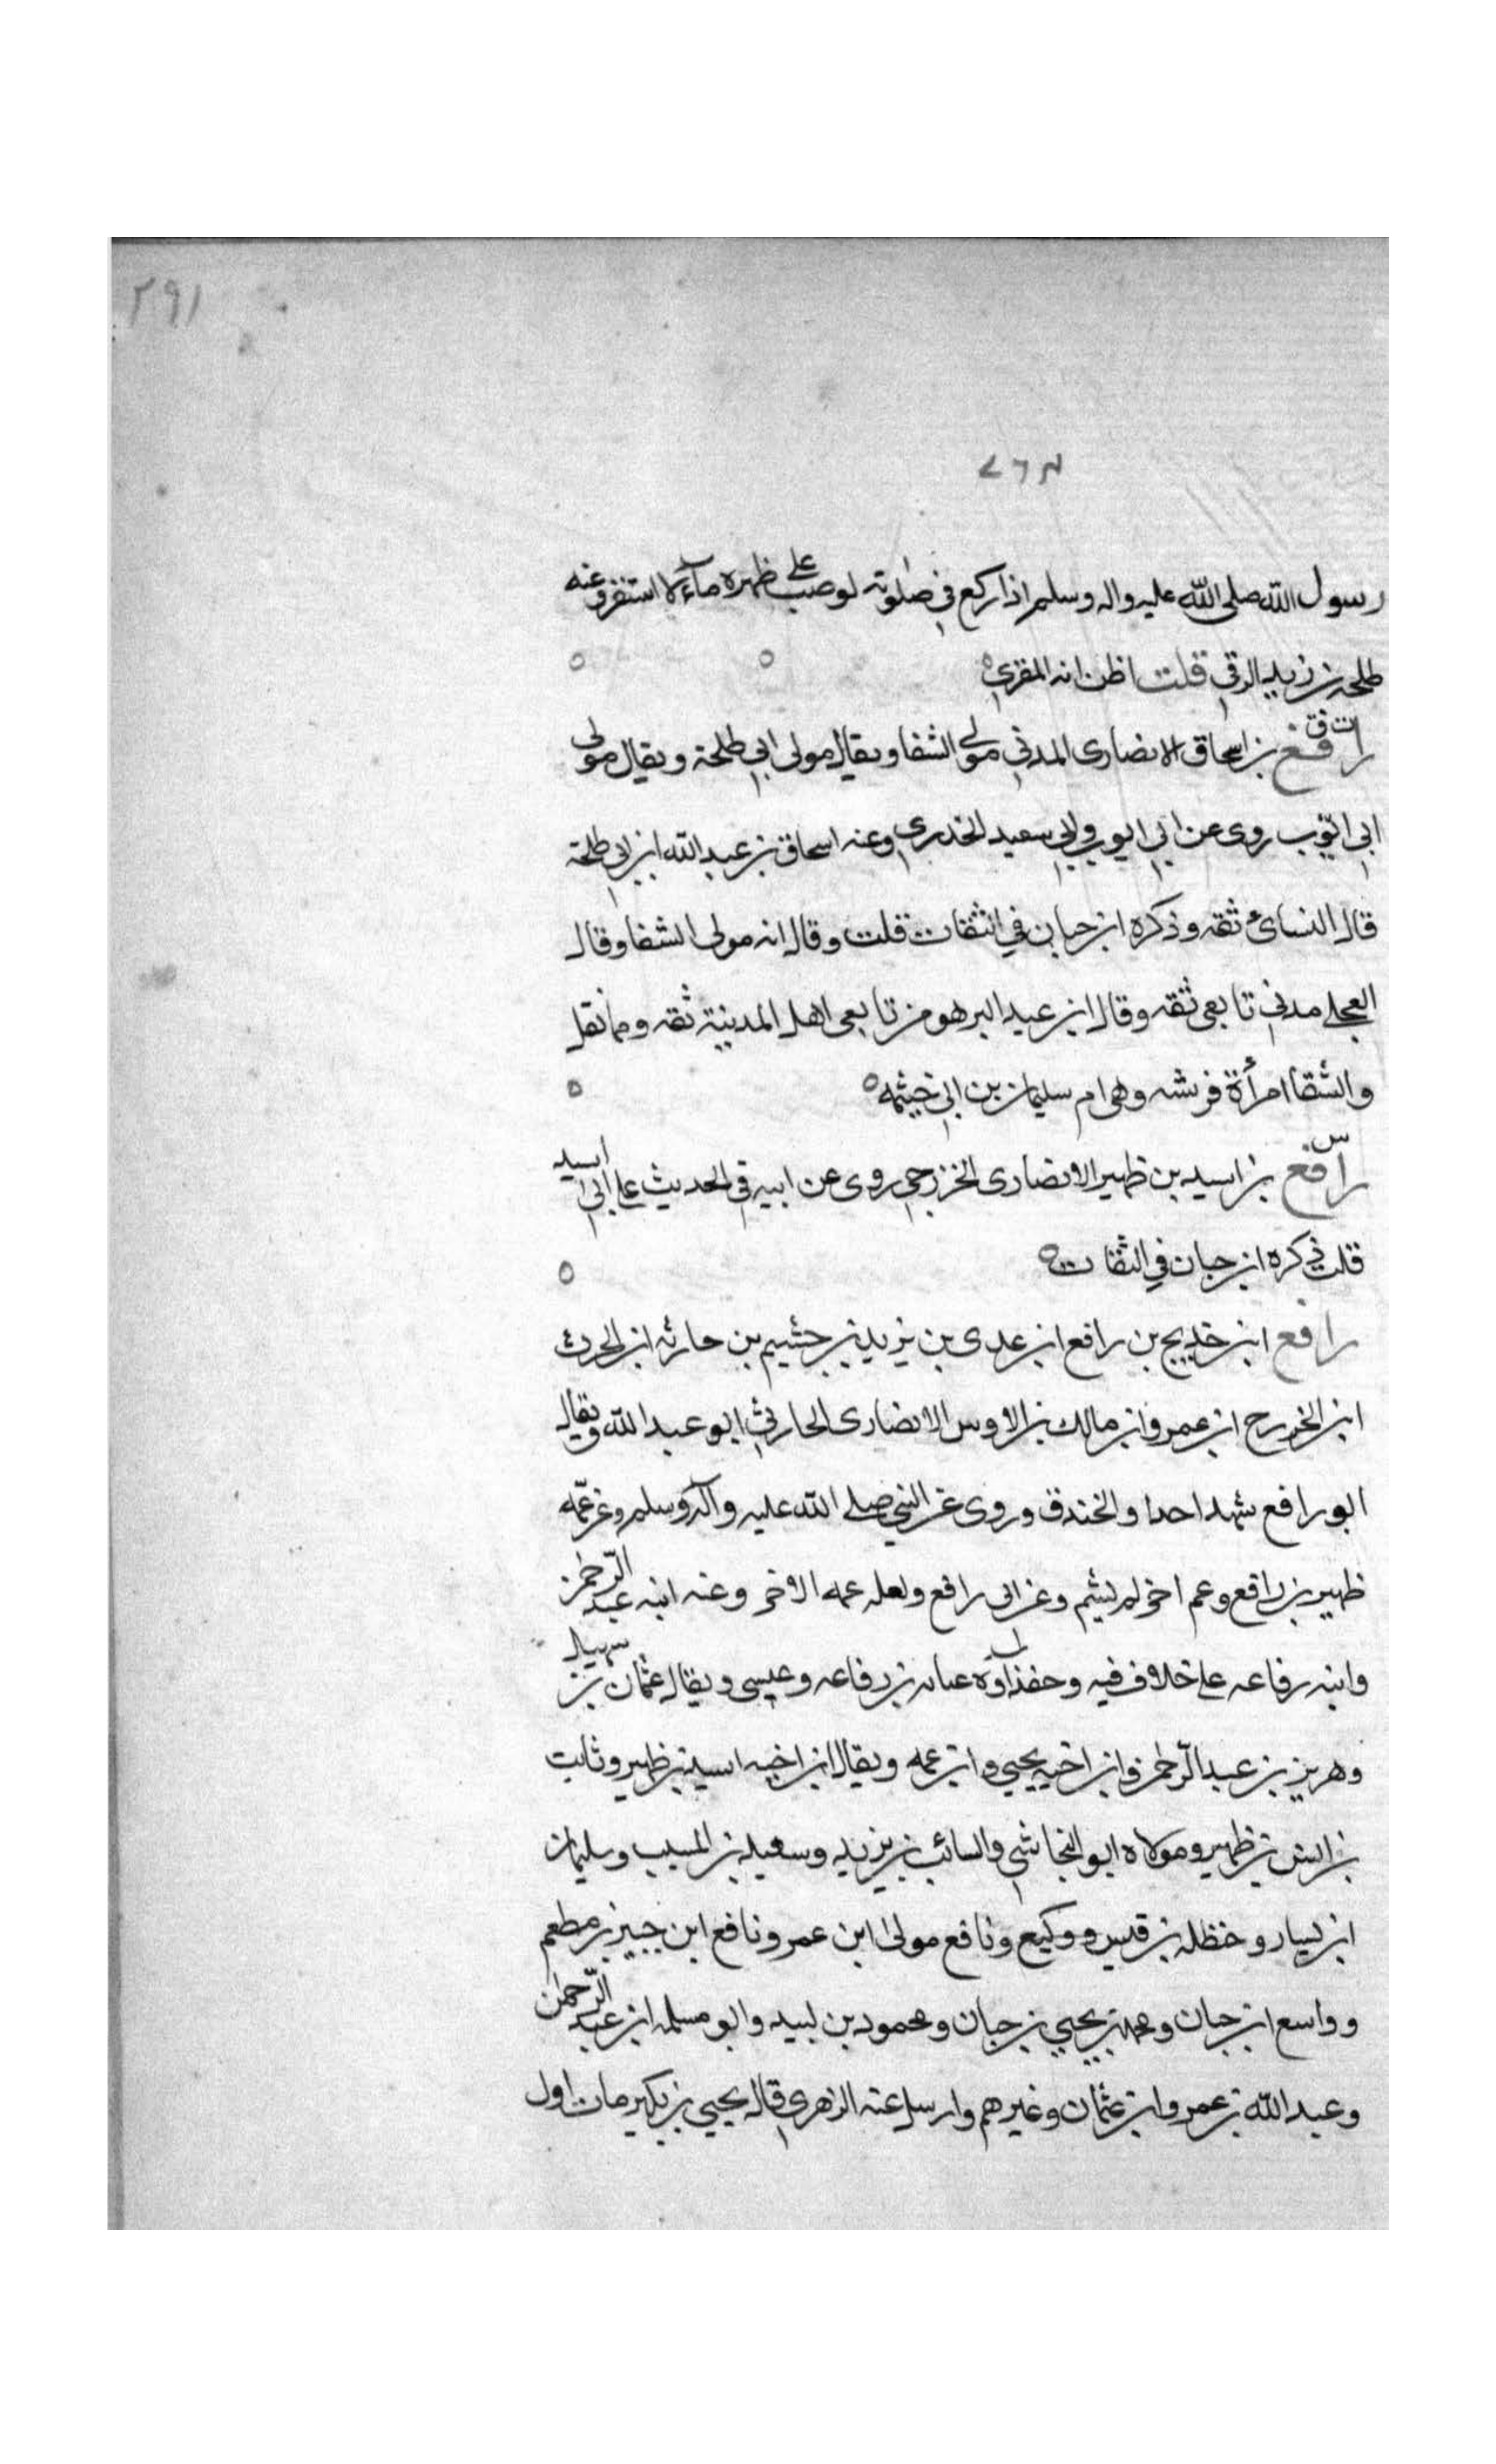 ٢٩١
٧٦٣
رسول الله صلى الله عليه واله وسلم اذا ركع في صلوته لو صب على ظهره ماء لاستقر وعنه
طلحة بن زيد الرقي قلت اظن انه المقري
ت ق
رافع بن اسحاق الانصارى المدني مولى الشفا ويقال مولى ابي طلحة ويقال مولى
ابي ايوب روى عن ابي ايوب وابي سعيد الخدري وعنه اسحاق بن عبد الله ابن ابي طلحة
قال النسائ ثقه وذكره ابن حبان في الثقات قلت وقال انه مولى الشفا وقال
العجلي مدني تابعى ثقه وقال ابن عبد البر هو من تابعى اهل المدينة ثقه
والشفا امرأة وهى ام سليمان بن ابي خيثمه
س
رافع بن اسيد بن ظهير الانصارى الخزرجي روى عن ابيه في الحديث على ابي اسيد
قلت ذكره ابن حبان في الثقات
رافع ابن خديج بن رافع ابن عدى بن يزيد بن جشيم بن حارثه ابن الحرث
ابن الخزرج ابن عمرو ابن مالك بن الاوس الانصارى الحارثي ابو عبد الله ويقال
ابو رافع شهد احدا والخندق وروى عن النبي صلى الله عليه وآله وسلم وعن عمه
ظهير بن رافع وعم اخر لم يسم وعن ابى رافع ولعله عمه الاخر وعنه ابنه عبد الرحمن
وابنه رفاعه على خلاف فيه وحفداوه عبايه بن رفاعه وعيسى ويقال عثمان بن سهيل
وهرير بن عبد الرحمن وابن اخيه يحيي وابن عمه ويقال ابن اخيه اسيد بن ظهير وثابت
بن انس بن ظهير ومولاه ابو النجاشي والسائب بن يزيد وسعيد بن المسيب وسليمان
ابن يسار وحنظله بن قيس ووكيع ونافع مولى ابن عمر ونافع ابن جبير بن مطعم
وواسع ابن حبان ومحمد بن يحيي بن حبان ومحمود بن لبيد وابو مسلمه ابن عبد الرحمان
وعبد الله بن عمرو ابن عثمان وغيرهم وارسل عنه الزهرى قال يحيي بن بكير مات اول